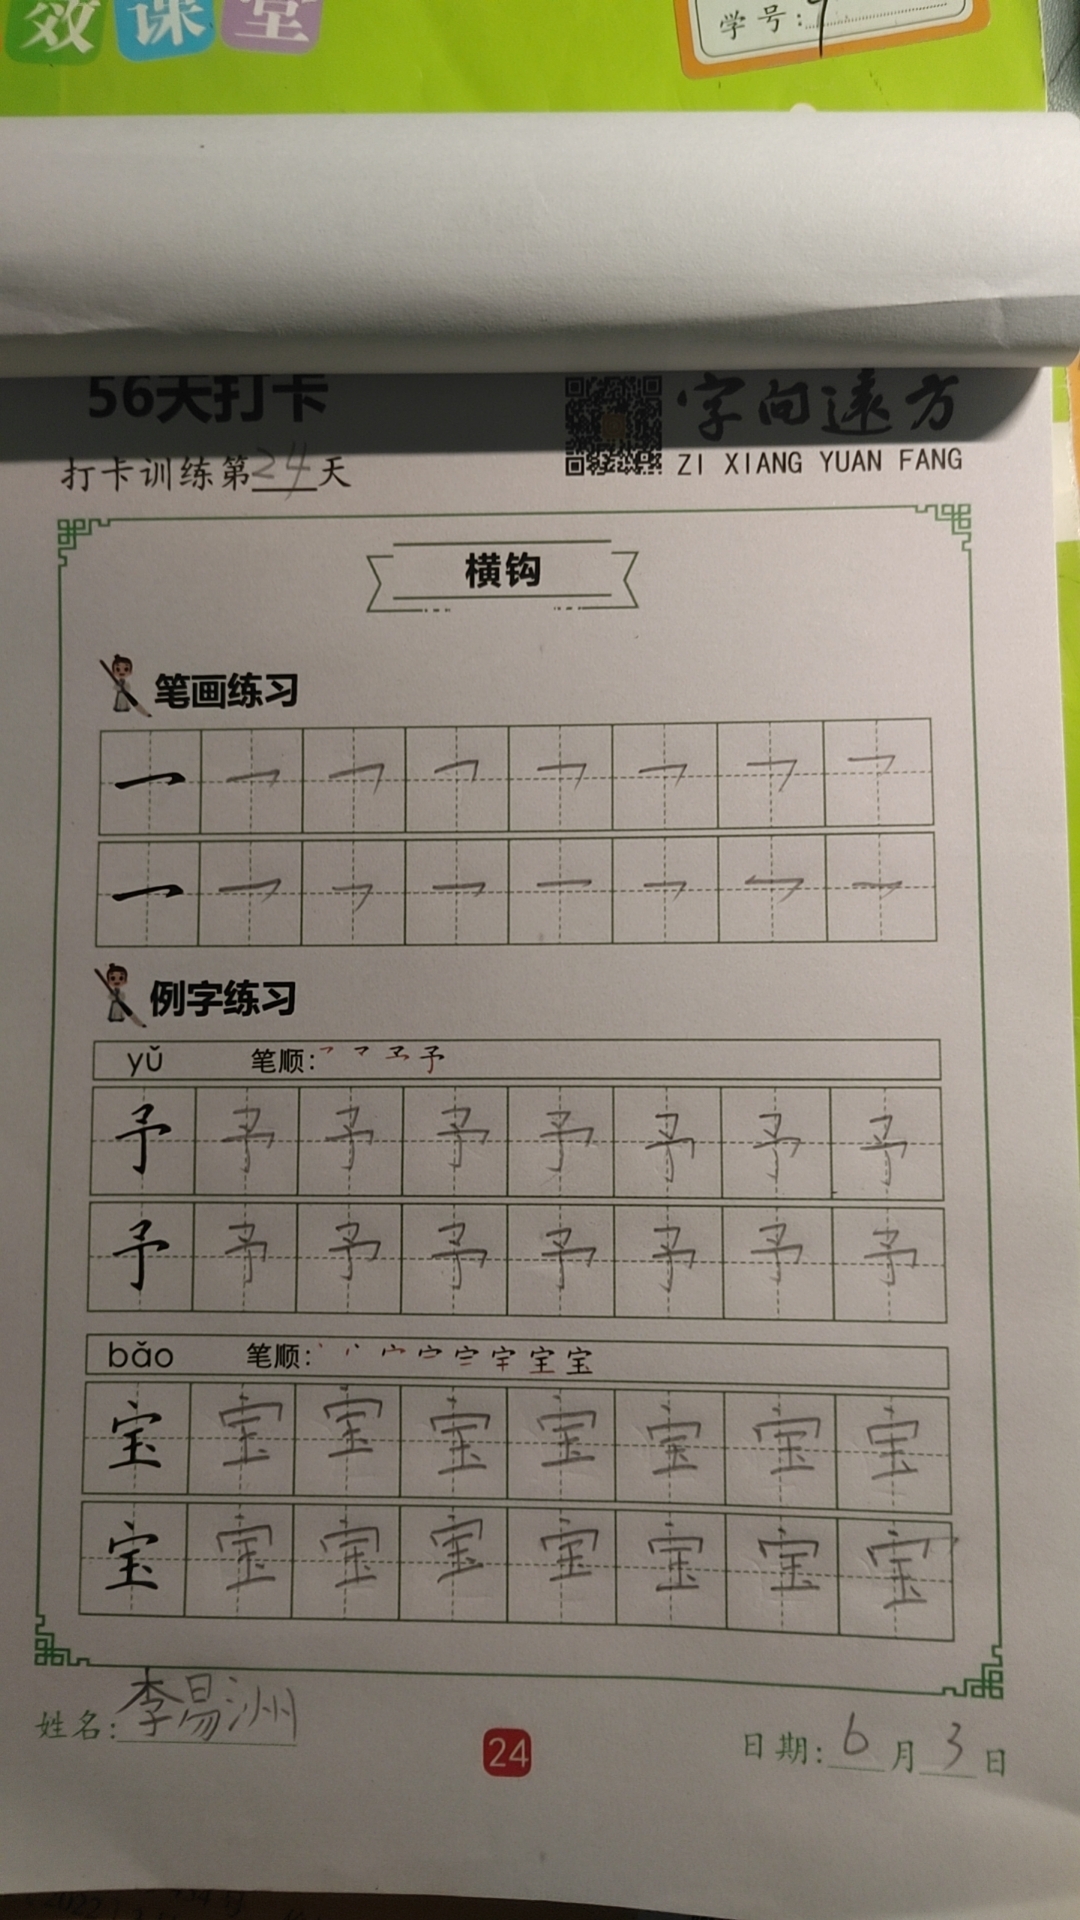 效课堂
学号:9
56天打卡
字向远方
ZI XIANG YUAN FANG
打卡训练第24天
横钩
笔画练习
例字练习
yǔ 笔顺:
予 予 予 予 予 予 予 予
予 予 予 予 予 予 予 予
bǎo 笔顺:
宝 宝 宝 宝 宝 宝 宝 宝
宝 宝 宝 宝 宝 宝 宝 宝
姓名:李易洲
24
日期:6月3日